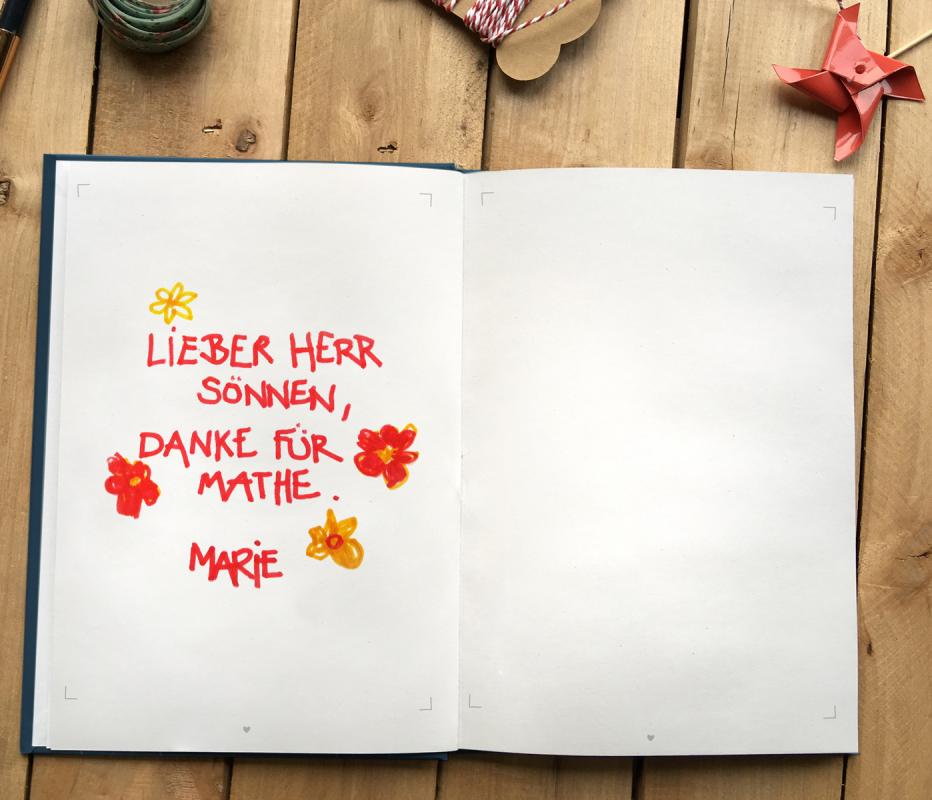 LiEBER HERR
SÖNNEN,
DANKE FÜR
MATHE.
MARiE